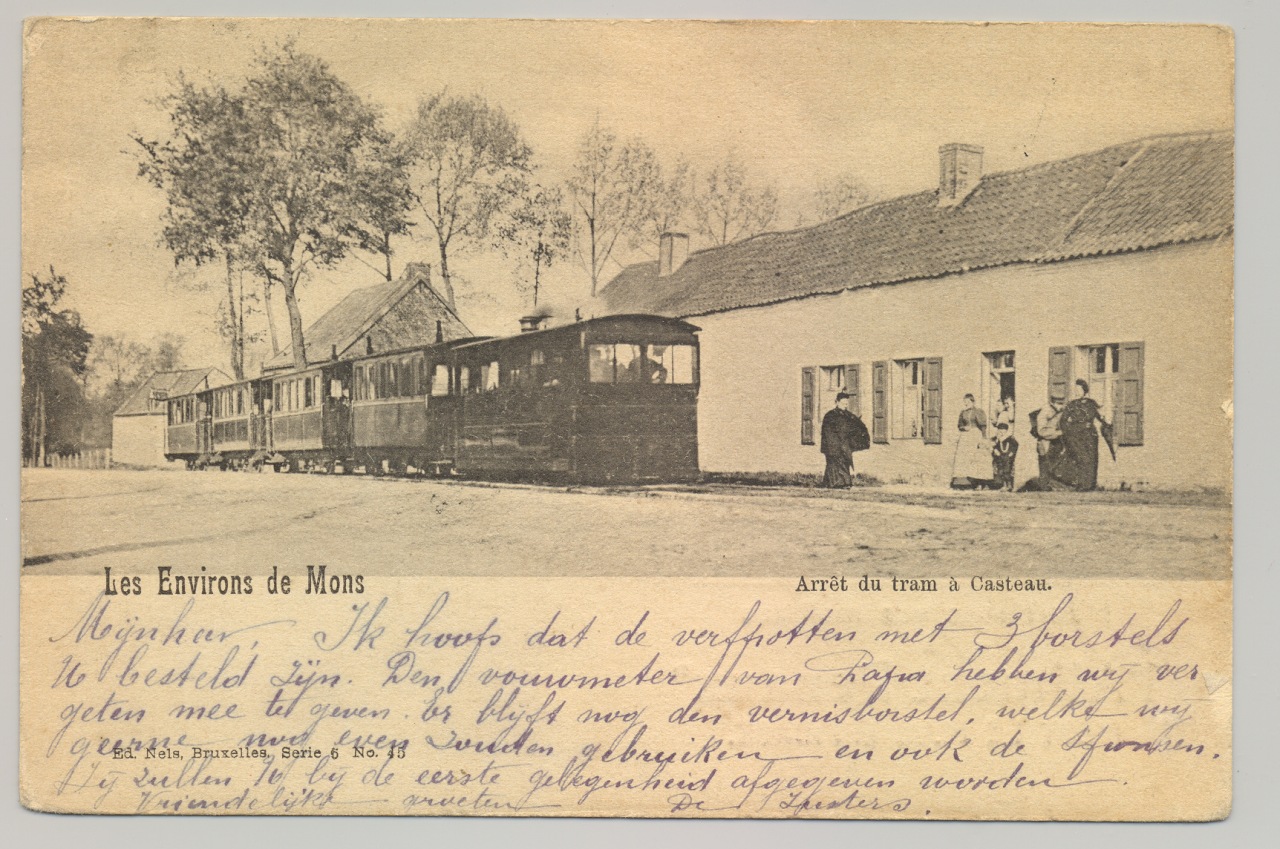 Les Environs de Mons
Arrêt du tram à Casteau.
Mijnheer, Ik hoop dat de verfpotten met 3 borstels
U besteld zijn. Den vouwmeter van Papa hebben wij ver
geten mee te geven. Er blijft nog den vernisborstel, welke wij
geerne nog even zouden gebruiken en ook de sponsen.
Ed. Nels, Bruxelles, Serie 6 No. 45
Zij zullen U bij de eerste gelegenheid afgegeven worden.
Vriendelijke groeten De Zusters.